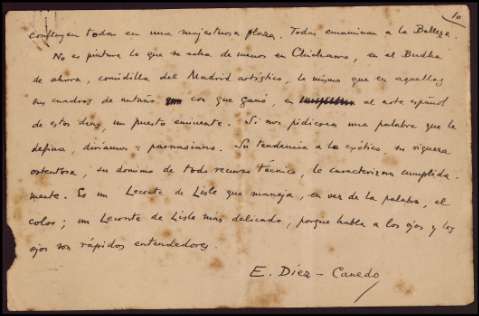 10
confluyen todas en una majestuosa plaza. Todas encaminan a la Belleza.
No es pintura lo que se echa de menos en Chicharro, en el Budha
de ahora, comidilla del Madrid artístico, lo mismo que en aquellos
sus cuadros de antaño con que ganó, en al arte español
de estos días, un puesto eminente. Si nos pidieran una palabra que le
defina, diríamos: parnasiano. Su tendencia a lo exótico, su riqueza
ostentosa, su dominio de todo recurso técnico, le caracterizan cumplida-
mente. Es un Leconte de Lisle que maneja, en vez de la palabra, el
color; un Leconte de Lisle más delicado, porque habla a los ojos y los
ojos son rápidos entendedores.
E. Díez-Canedo